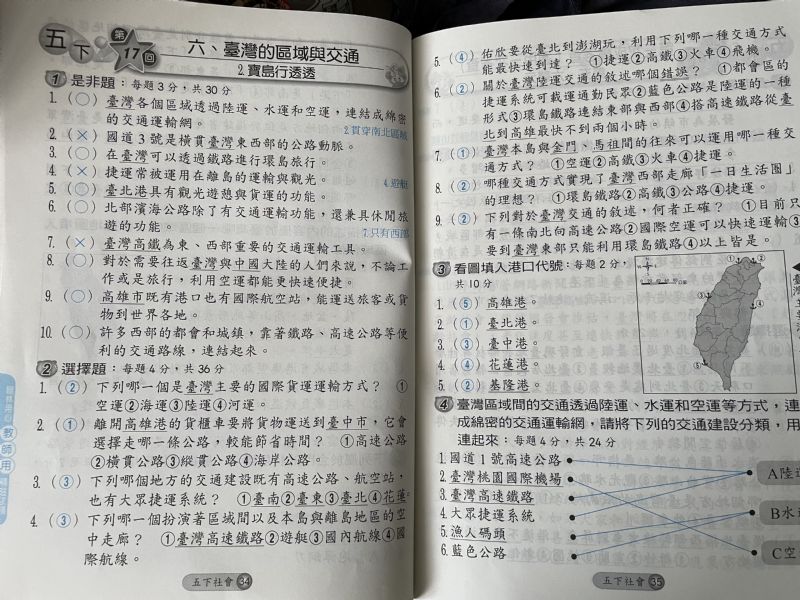 五下 第17回
六、臺灣的區域與交通
2.寶島行透透
1 是非題：每題3分，共30分
1.（○）臺灣各個區域透過陸運、水運和空運，連結成綿密
的交通運輸網。
2.貫穿南北區域
2.（×）國道3號是橫貫臺灣東西部的公路動脈。
3.（○）在臺灣可以透過鐵路進行環島旅行。
4.（×）捷運常被運用在離島的運輸與觀光。
4.遊艇
5.（○）臺北港具有觀光遊憩與貨運的功能。
6.（○）北部濱海公路除了有交通運輸功能，還兼具休閒旅
遊的功能。
7.只有西部
7.（×）臺灣高鐵為東、西部重要的交通運輸工具。
8.（○）對於需要往返臺灣與中國大陸的人們來說，不論工
作或是旅行，利用空運都能更快速便捷。
9.（○）高雄市既有港口也有國際航空站，能運送旅客或貨
物到世界各地。
10.（○）許多西部的都會和城鎮，靠著鐵路、高速公路等便
利的交通路線，連結起來。
2 選擇題：每題4分，共36分
1.（②）下列哪一個是臺灣主要的國際貨運運輸方式？ ①
空運②海運③陸運④河運。
2.（①）離開高雄港的貨櫃車要將貨物運送到臺中市，它會
選擇走哪一條公路，較能節省時間？ ①高速公路
②橫貫公路③縱貫公路④海岸公路。
3.（③）下列哪個地方的交通建設既有高速公路、航空站，
也有大眾捷運系統？ ①臺南②臺東③臺北④花蓮。
4.（③）下列哪一個扮演著區域間以及本島與離島地區的空
中走廊？ ①臺灣高速鐵路②遊艇③國內航線④國
際航線。
教師用
五下社會 34
5.（④）佑欣要從臺北到澎湖玩，利用下列哪一種交通方式
能最快速到達？ ①捷運②高鐵③火車④飛機。
6.（②）關於臺灣陸運交通的敘述哪個錯誤？ ①都會區的
捷運系統可載運通勤民眾②藍色公路是陸運的一種
形式③環島鐵路連結東部與西部④搭高速鐵路從臺
北到高雄最快不到兩個小時。
7.（①）臺灣本島與金門、馬祖間的往來可以運用哪一種交
通方式？ ①空運②高鐵③火車④捷運。
8.（②）哪種交通方式實現了臺灣西部走廊「一日生活圈」
的理想？ ①環島鐵路②高鐵③公路④捷運。
9.（②）下列對於臺灣交通的敘述，何者正確？ ①目前只
有一條南北向高速公路②國際空運可以快速運輸③
要到臺灣東部只能利用環島鐵路④以上皆是。
3 看圖填入港口代號：每題2分，
共10分
1.（⑤）高雄港。
2.（①）臺北港。
3.（③）臺中港。
4.（④）花蓮港。
5.（②）基隆港。
4 臺灣區域間的交通透過陸運、水運和空運等方式，連
成綿密的交通運輸網，請將下列的交通建設分類，用
連起來：每題4分，共24分
1.國道1號高速公路
2.臺灣桃園國際機場
3.臺灣高速鐵路
4.大眾捷運系統
5.漁人碼頭
6.藍色公路
A陸運
B水
C空
五下社會 35